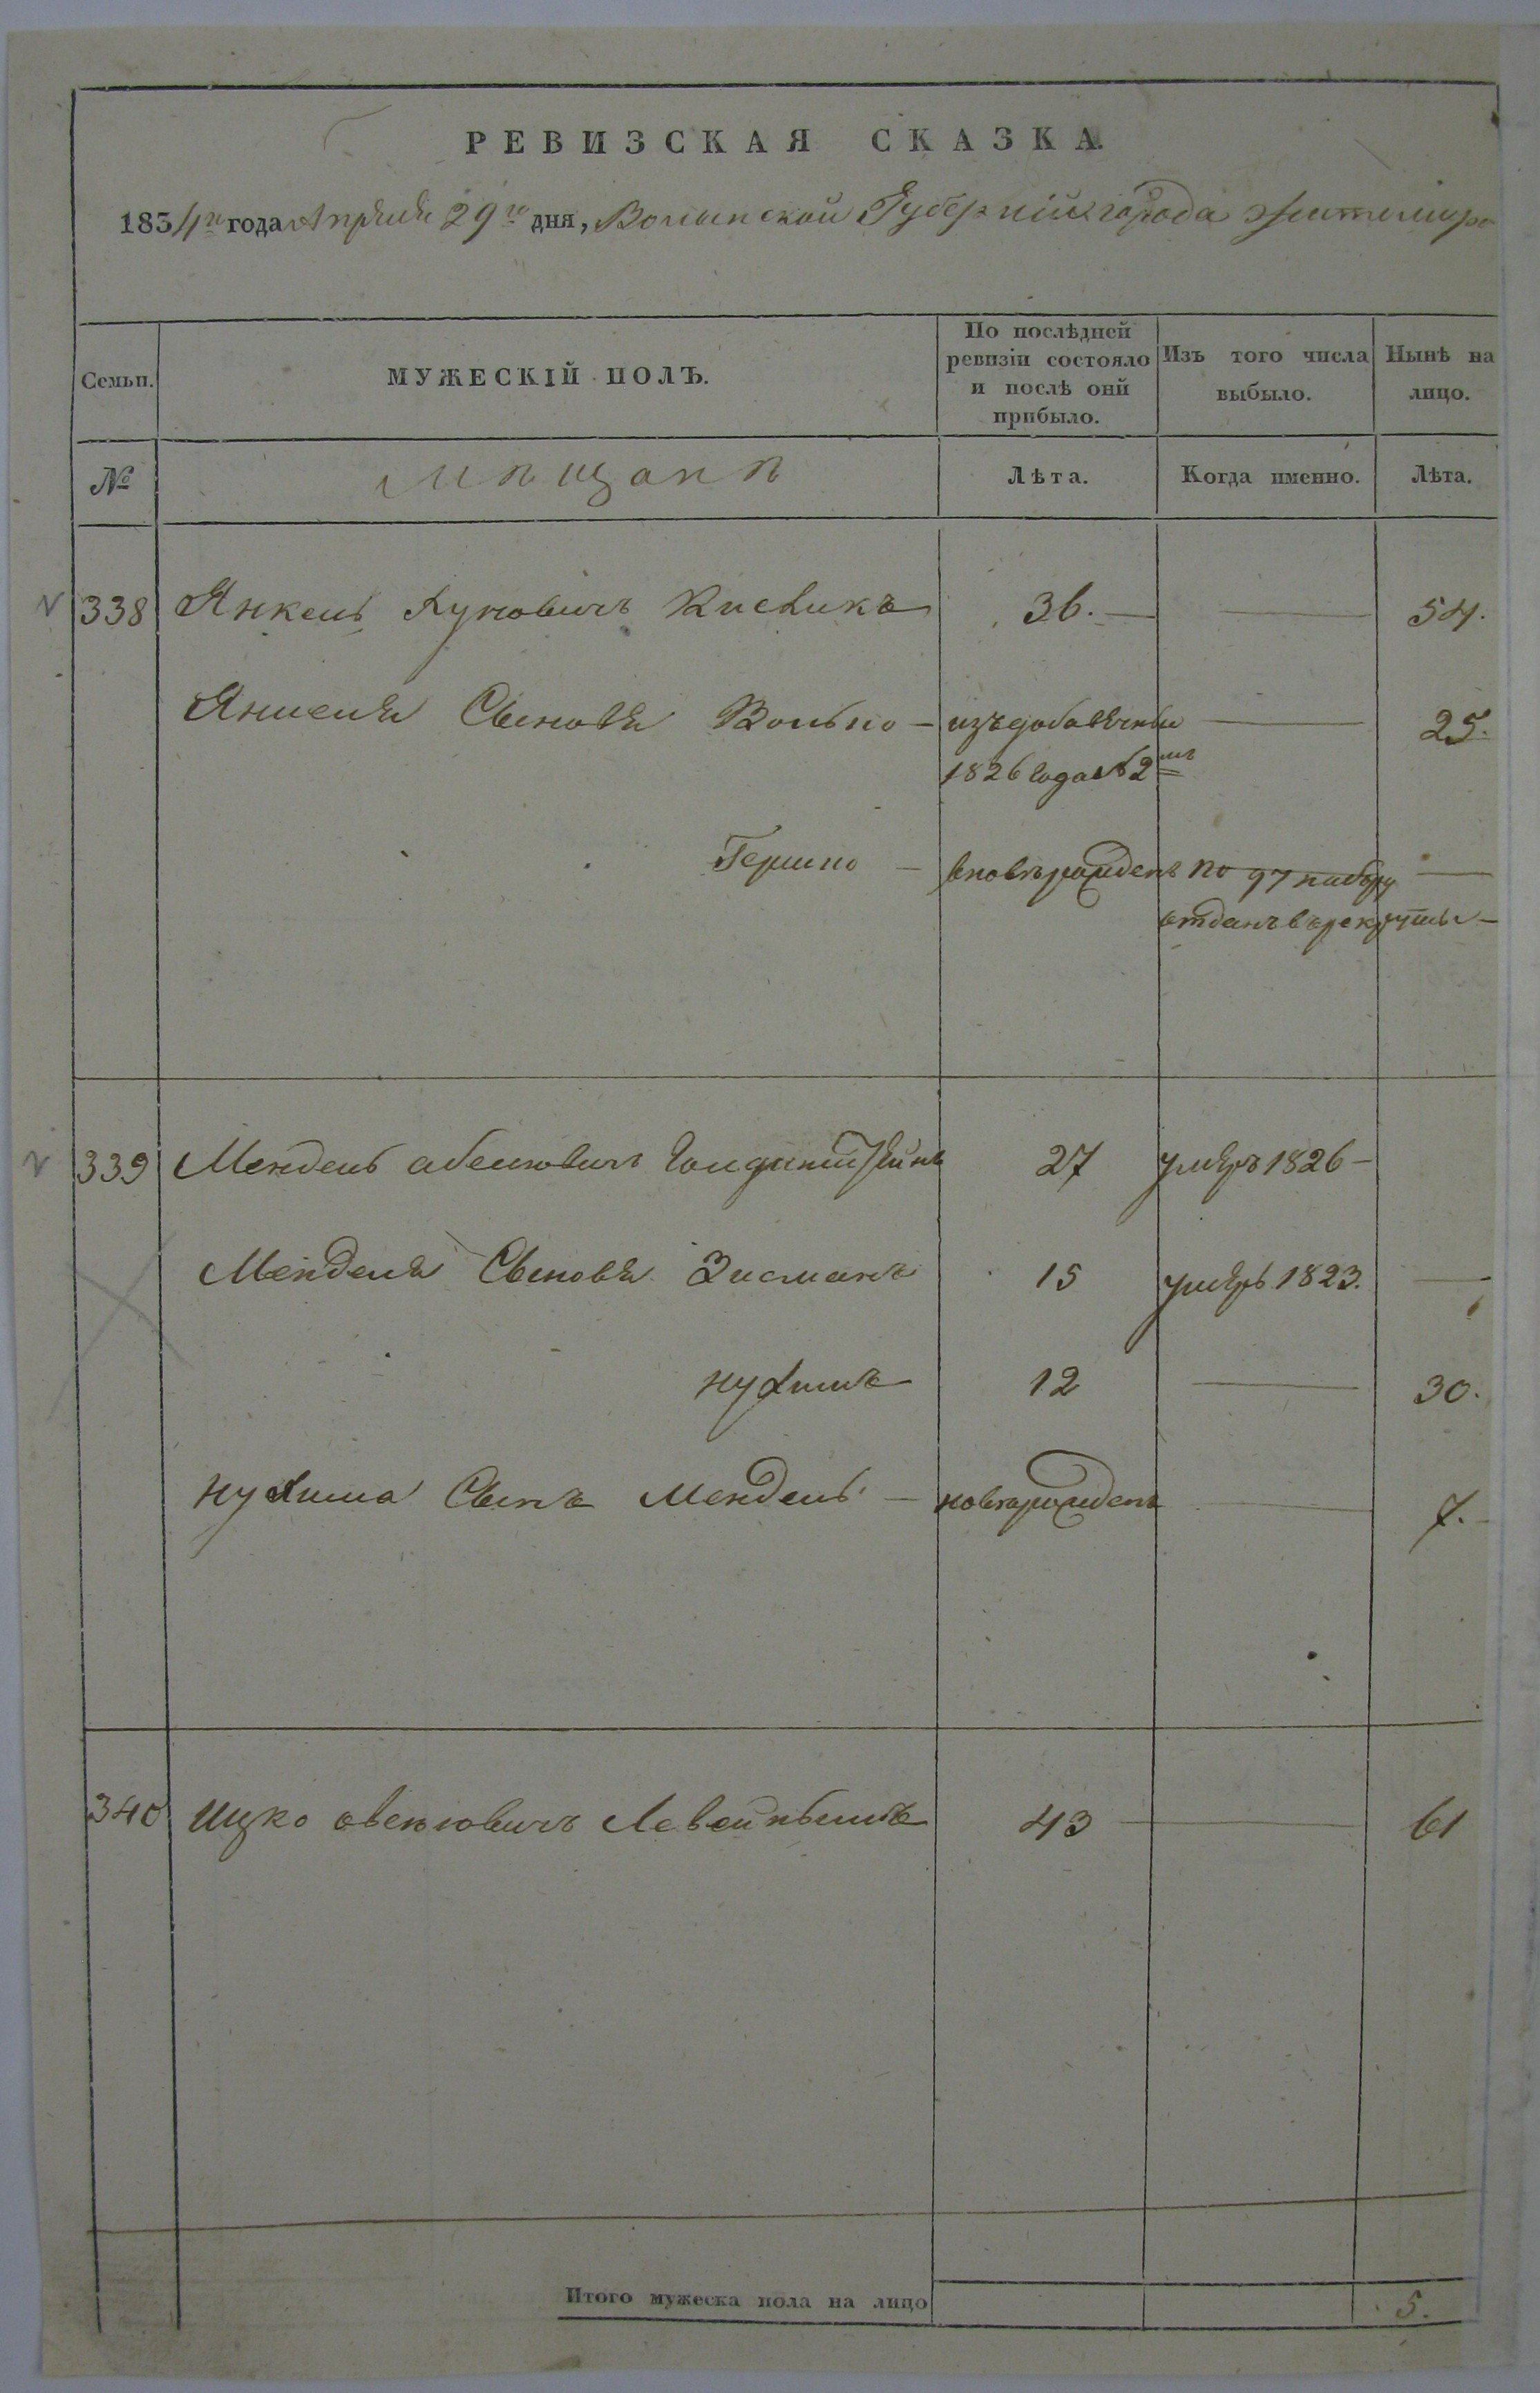 РЕВИЗСКАЯ СКАЗКА.
1834го года Апреля 29го дня, Волынской Губернии города Житомира
Семьи. МУЖЕСКІЙ ПОЛЪ. По послѣдней ревизіи состояло и послѣ оній прибыло. Изъ того числа выбыло. Нынѣ на лицо.
№ Мѣщанѣ Лѣта. Когда именно. Лѣта.
338 Янкель Хуновичъ 36. 54.
Янкеля Сыновя Волько изъ добавочных 25.
1826 года №2
Гершко вновърожденъ по 97 набору
отданъ в рекруты
339 Мендель абелиовичъ 27 умеръ 1826
Менделя Сыновя Зисманъ 15 умеръ 1823.
нухимъ 12 30.
нухима Сынъ Мендель новорожденъ 7.
340 Ицко 43 61
Итого мужеска пола на лицо 5.